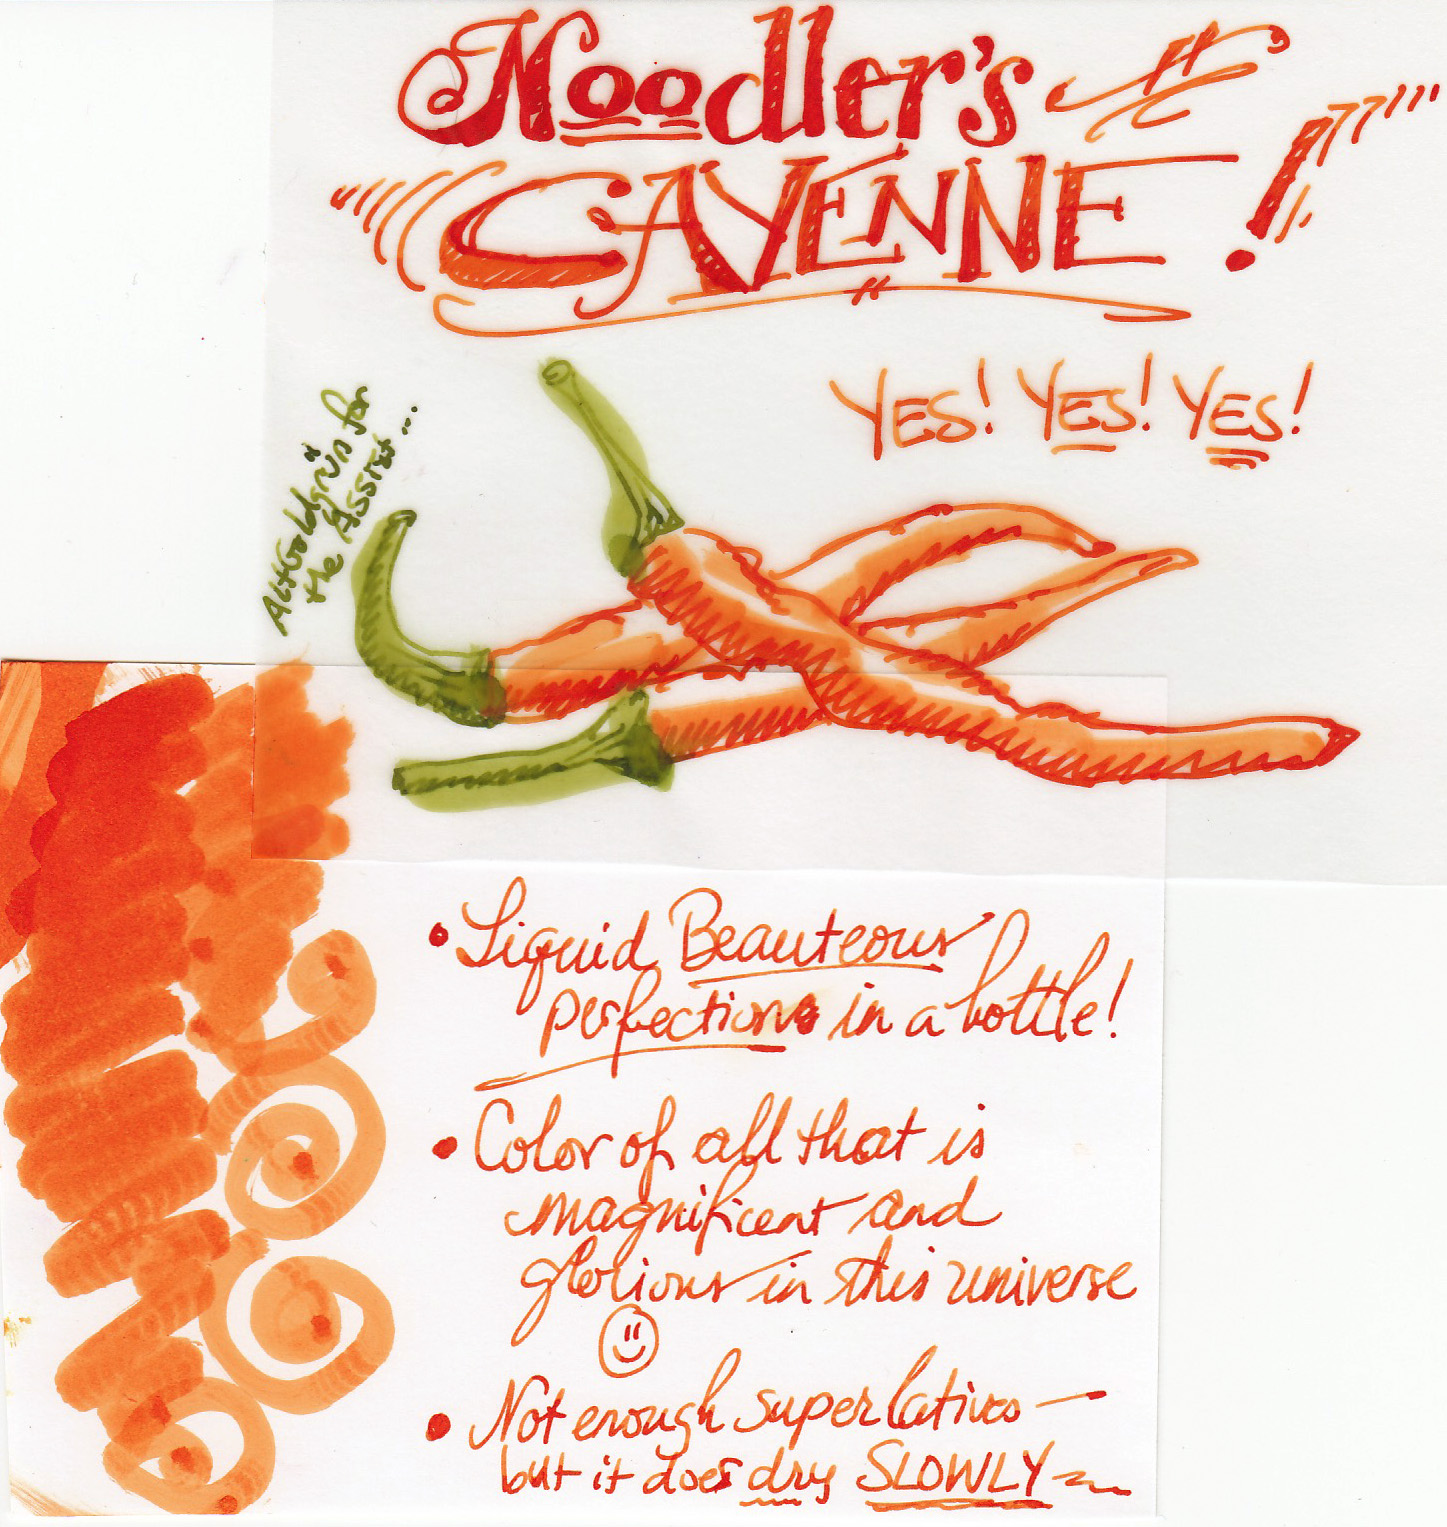 Noodler's
CAYENNE!
YES! YES! YES!
AltGoldgrün for
the Assist...
• Liquid Beauteous
perfection in a bottle!
• Color of all that is
magnificent and
glorious in this universe
• Not enough superlatives —
but it does dry SLOWLY ~